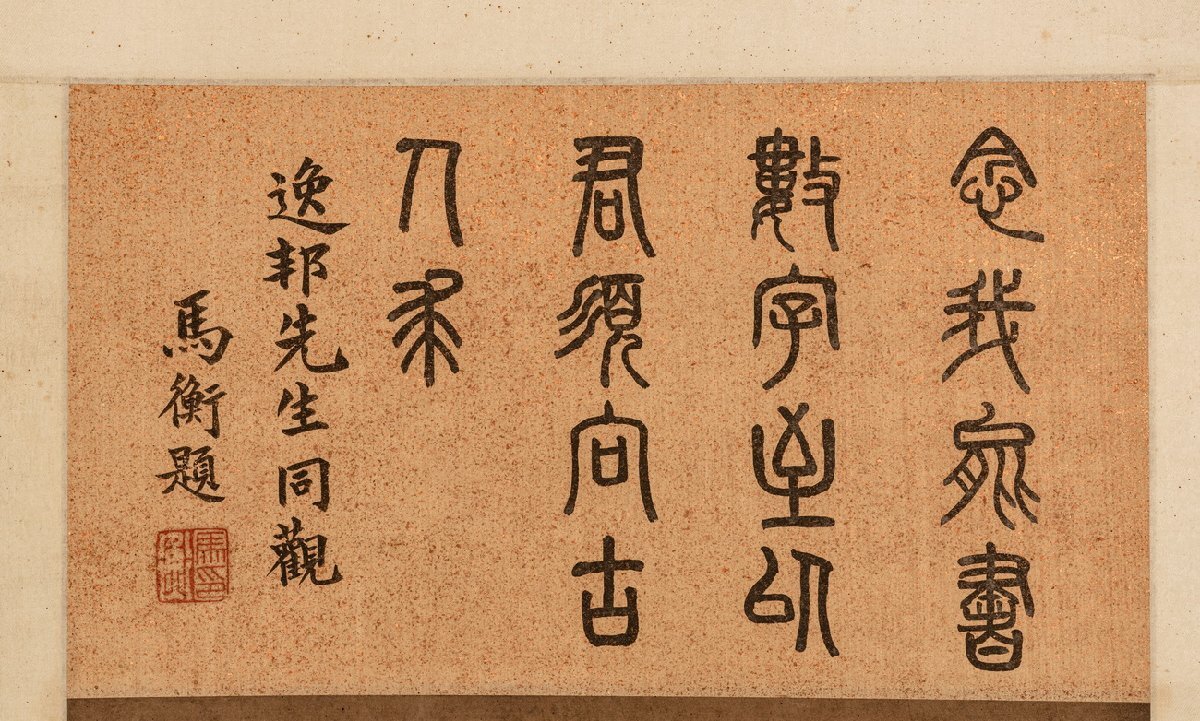 念我能書
數字至似
君須向古
人求
逸邦先生同觀
馬衡題